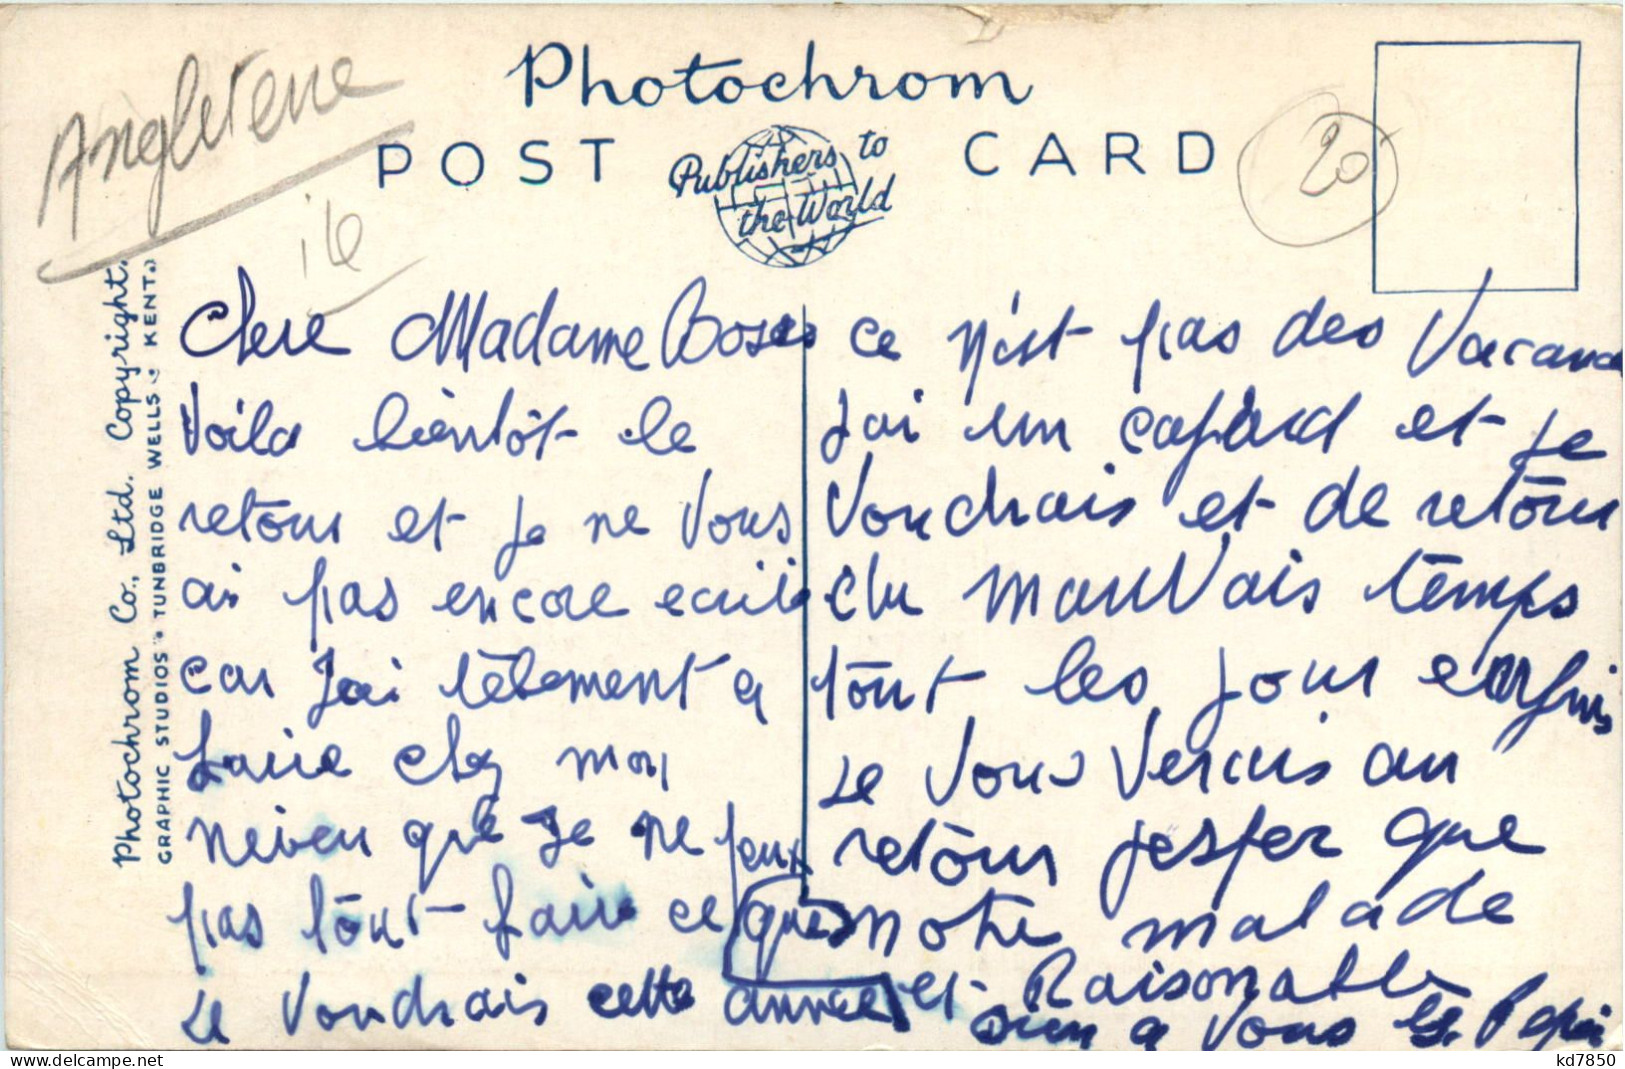 Angleterre
16
Photochrom
POST CARD
Publishers to
the World
20
Photochrom Co., Ltd. Copyright.
GRAPHIC STUDIOS TUNBRIDGE WELLS KENT.
Chere Madame
Voila bientôt le
retour et je ne vous
ai pas encore ecrite
car jai têlement a
faire chez mon
neveu que je ne peux
pas tout faire ce que
je voudrais cette année
ce n'est pas des vacances
jai un cafard et je
voudrais et de retour
du mauvais temps
tout les jour enfin
je vous verais au
retour jesper que
notre malade
et Raisonable
bien a vous
kd7850